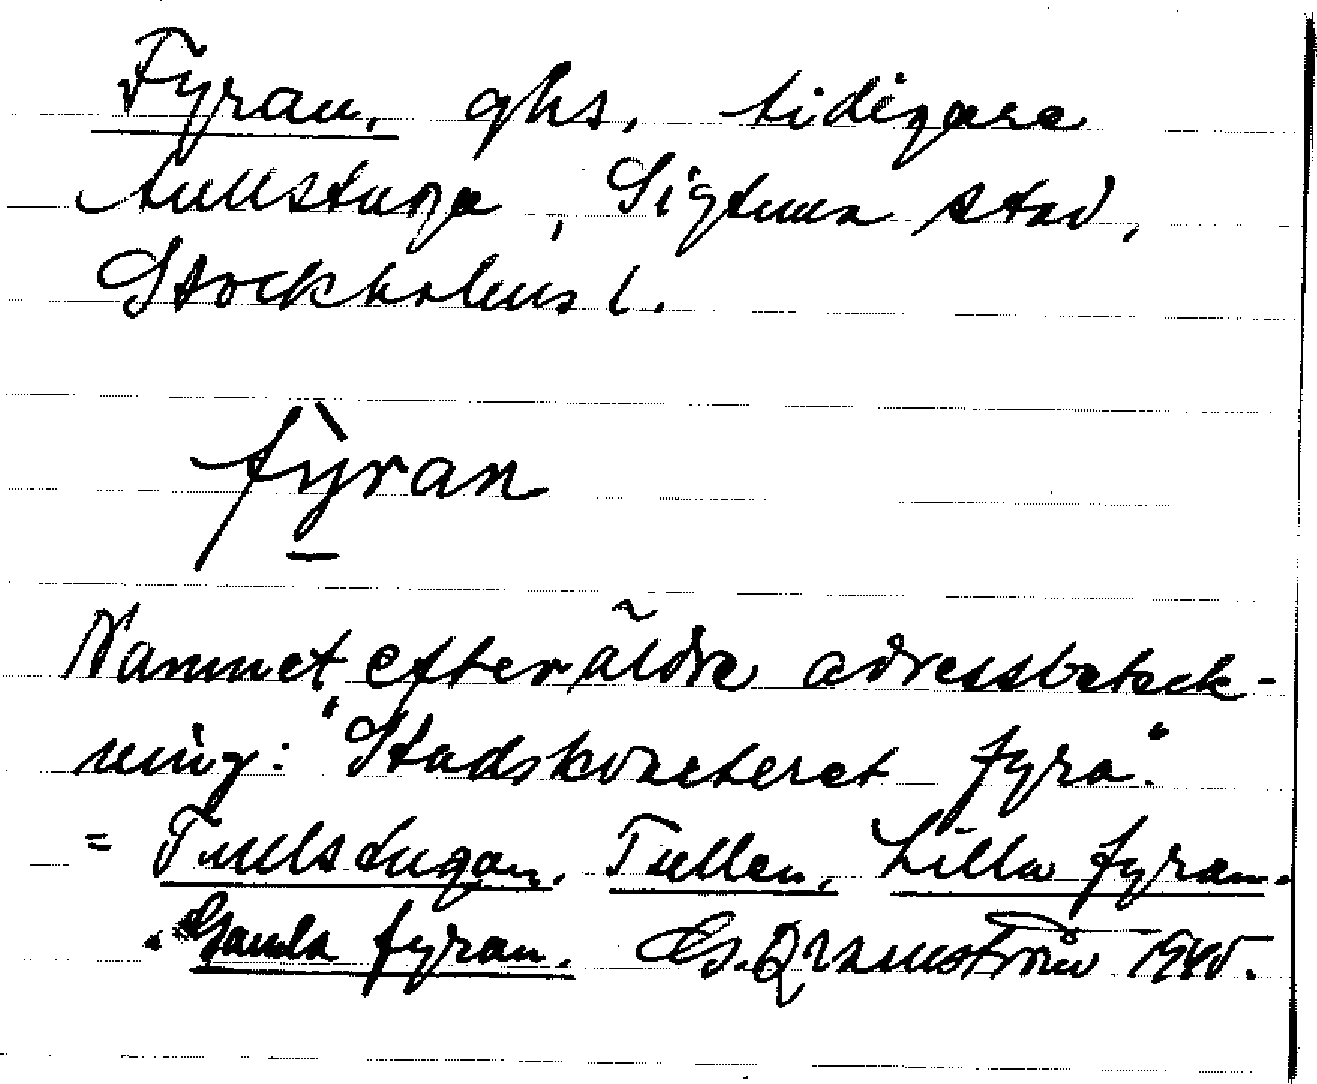 Fyran, ghs, tidigare
tullstuga, Sigtuna stad,
Stockholms l.
fỳran
Namnet efter äldre adressbeteck-
ning: "Stadskvarteret fyra".
= Tullstugan, Tullen, Lilla fyran.
Gamla fyran. 1945.